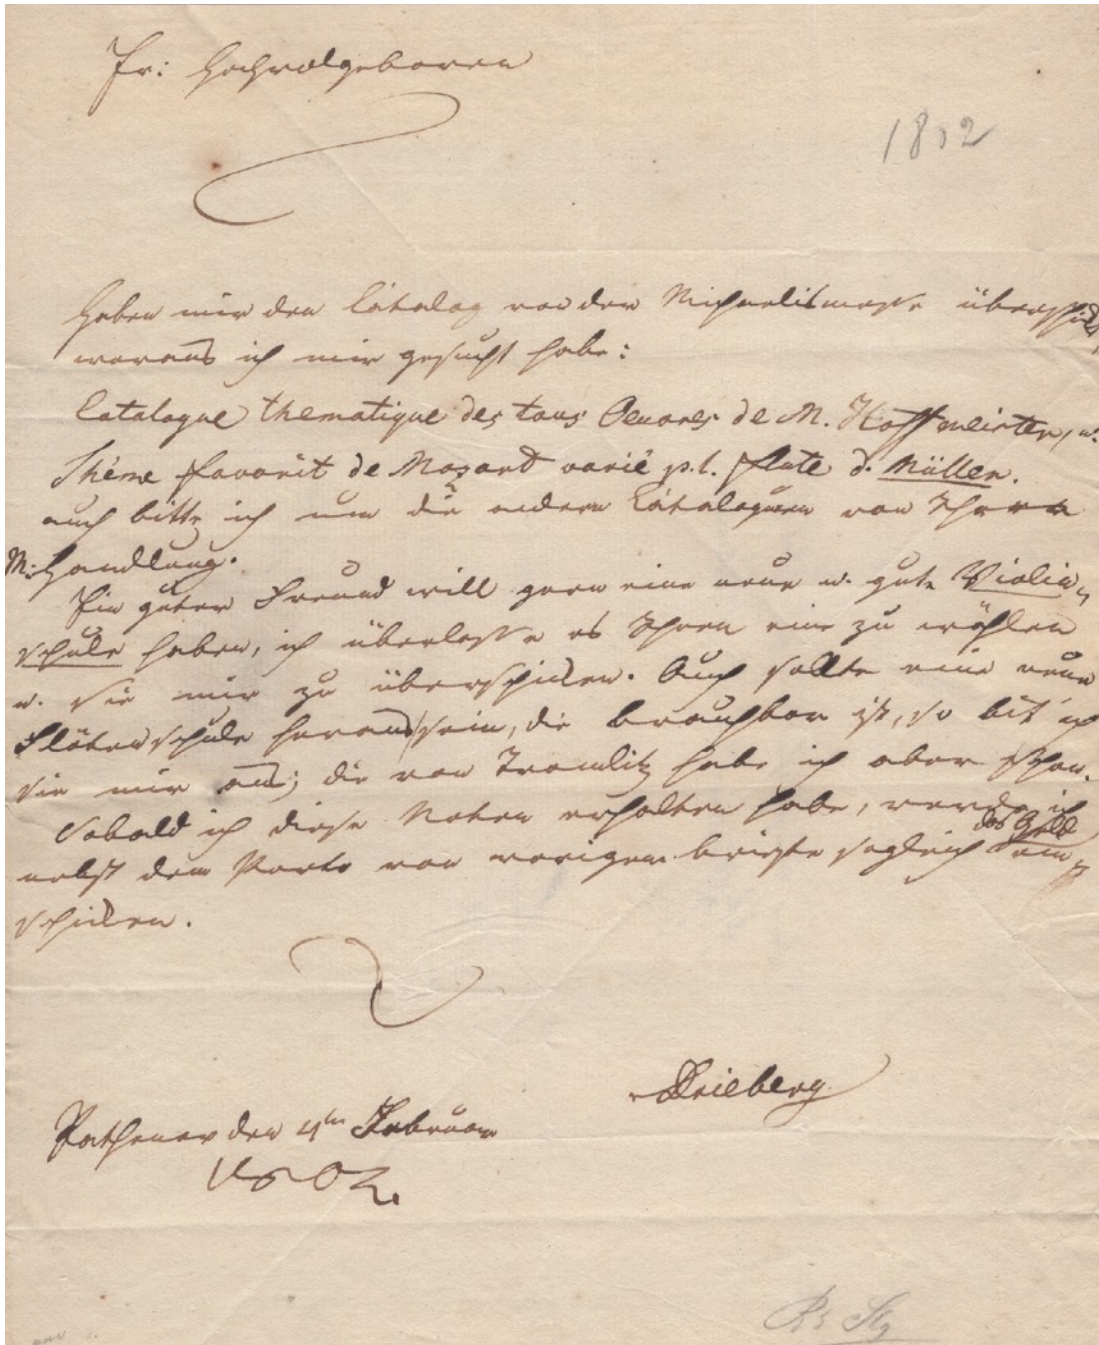 Ew: Hochwolgeboren
1802
haben mir den Catalog von der Michaelismesse überschickt,
woraus ich mir gesucht habe:
Catalogue thematique des tous Oeuvres de M. Hoffmeister, u.
Thême favorit de Mozart varié p. l. flute d. Müller.
auch bitte ich um die andern Cataloguen von Ihrer
M: Handlung.
Ein guter Freund will gern eine neue u. gute Violin-
schule haben, ich überlasse es Ihnen eine zu wählen
u. sie mir zu überschicken. Auch sollte eine neue
Flötenschule heraus sein, die brauchbar ist, so bit ich
sie mir aus; die von Tromlitz habe ich aber schon.
Sobald ich diese Noten erhalten habe, werde ich
das Geld
nebst dem Porto von vorigem briefe sogleich ein-
schicken.
vDrieberg
Rathenow den 4ten Februar
1802.